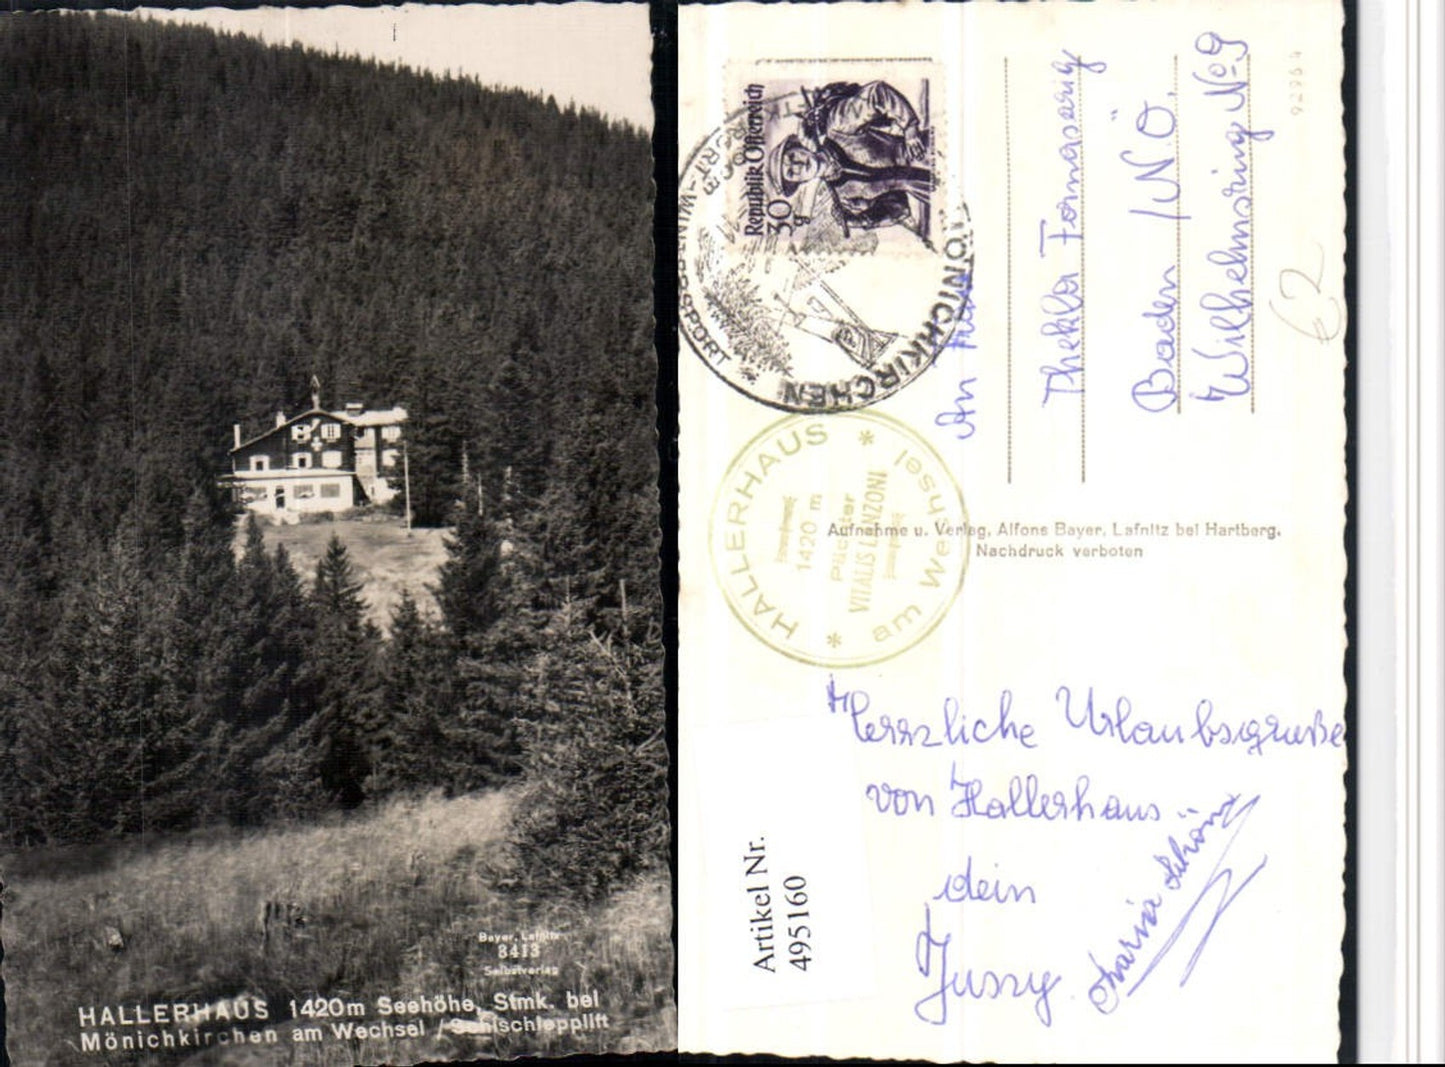 Bayer, Lafnitz
8413
Selbstverlag
HALLERHAUS 1420m Seehöhe, Stmk. bei
Mönichkirchen am Wechsel / Schischlepplift
Republik Österreich
30 g
MÖNICHKIRCHEN
WINTERSPORT
HALLERHAUS
1420 m
Pächter
VITALIS LANZONI
am Wechsel
An
Thekla
Baden /N.Ö.
Wilhelmsring No 9
92964
62
Aufnahme u. Verlag, Alfons Bayer, Lafnitz bei Hartberg.
Nachdruck verboten
Herzliche Urlaubsgrüße
von Hallerhaus
dein
Maria Schön
Artikel Nr.
495160